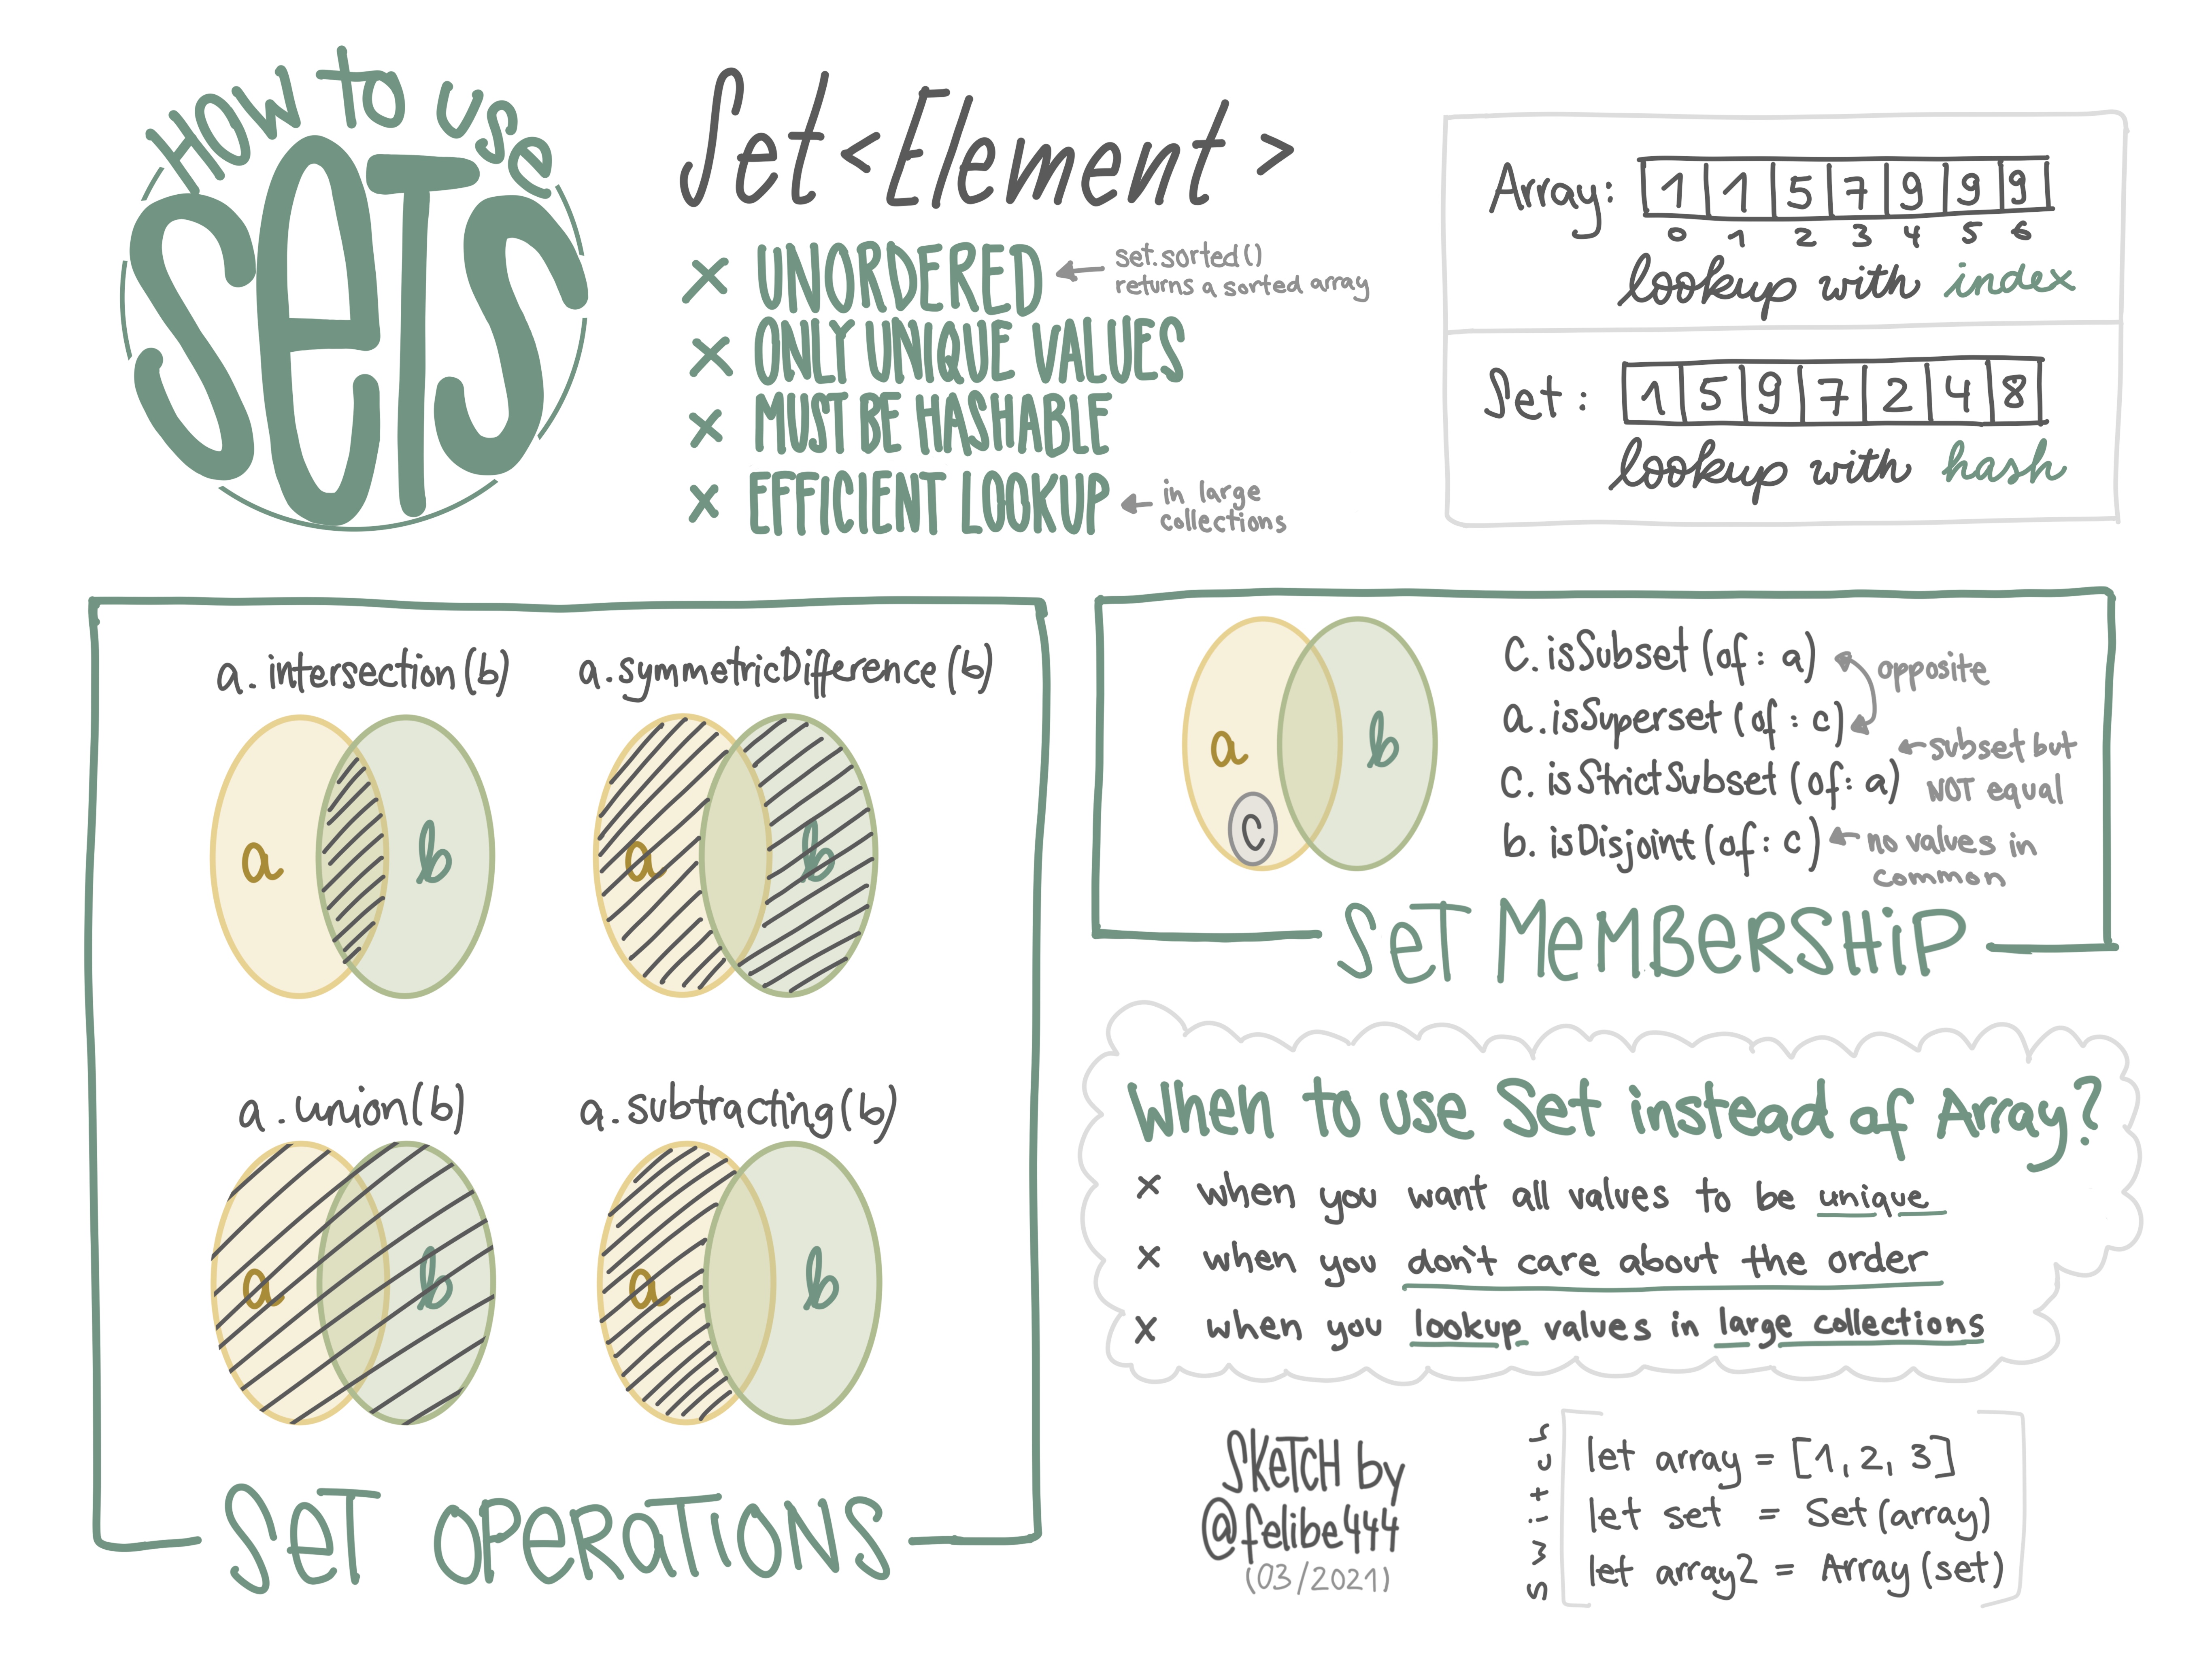 How to use
Sets
Set <Element>
x UNORDERED
set.sorted()
returns a sorted array
x ONLY UNIQUE VALUES
x MUST BE HASHABLE
x EFFICIENT LOOKUP
in large
collections
Array: 1 1 5 7 9 9 9
0 1 2 3 4 5 6
lookup with index
Set: 1 5 9 7 2 4 8
lookup with hash
a.intersection(b)
a b
a.symmetricDifference(b)
a b
a.union(b)
a b
a.subtracting(b)
a b
Set Operations
a b
c
c.isSubset(of: a)
opposite
a.isSuperset(of: c)
c.isStrictSubset(of: a)
subset but
NOT equal
b.isDisjoint(of: c)
no values in
common
Set Membership
When to use Set instead of Array?
x when you want all values to be unique
x when you don't care about the order
x when you lookup values in large collections
Sketch by
@felibe444
(03/2021)
switch
let array = [1, 2, 3]
let set = Set(array)
let array2 = Array(set)